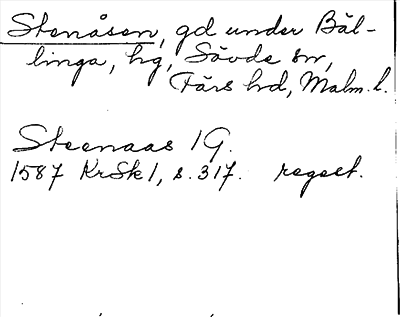 Stenåsen, gd under Bäl-
linga, hg, Sövde sn,
Färs hd, Malm. l.
Steenaas 1 G.
1587 KrSk 1, s. 317. regest.